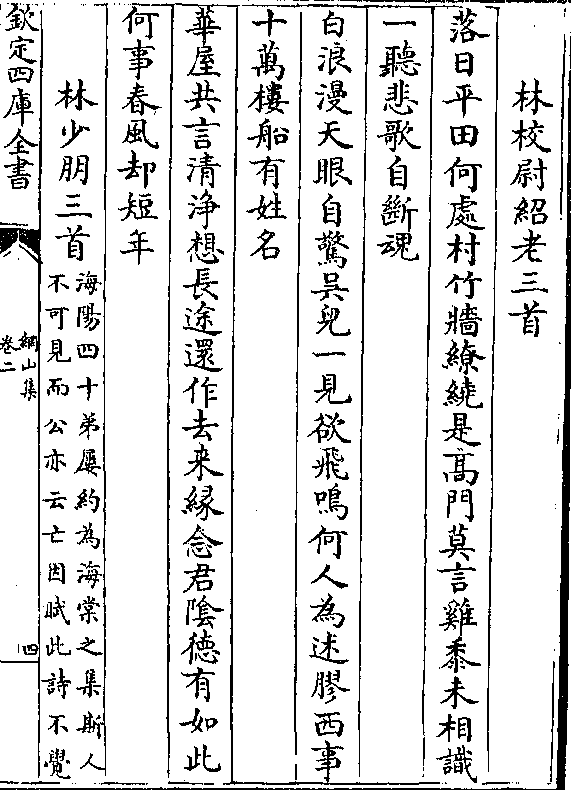 林校尉紹老三首
落日平田何處村竹牆繚繞是髙門莫言雞黍未相識
一聽悲歌自斷魂
白浪漫天眼自驚吳兒一見欲飛鳴何人為述膠西事
十萬樓船有姓名
華屋共言清浄想長途還作去来緣念君隂徳有如此
何事春風却短年
林少朋三首
海陽四十弟屢約為海棠之集斯人
不可見而公亦云亡因賦此詩不覺
欽定四庫全書
網山集
卷二
四